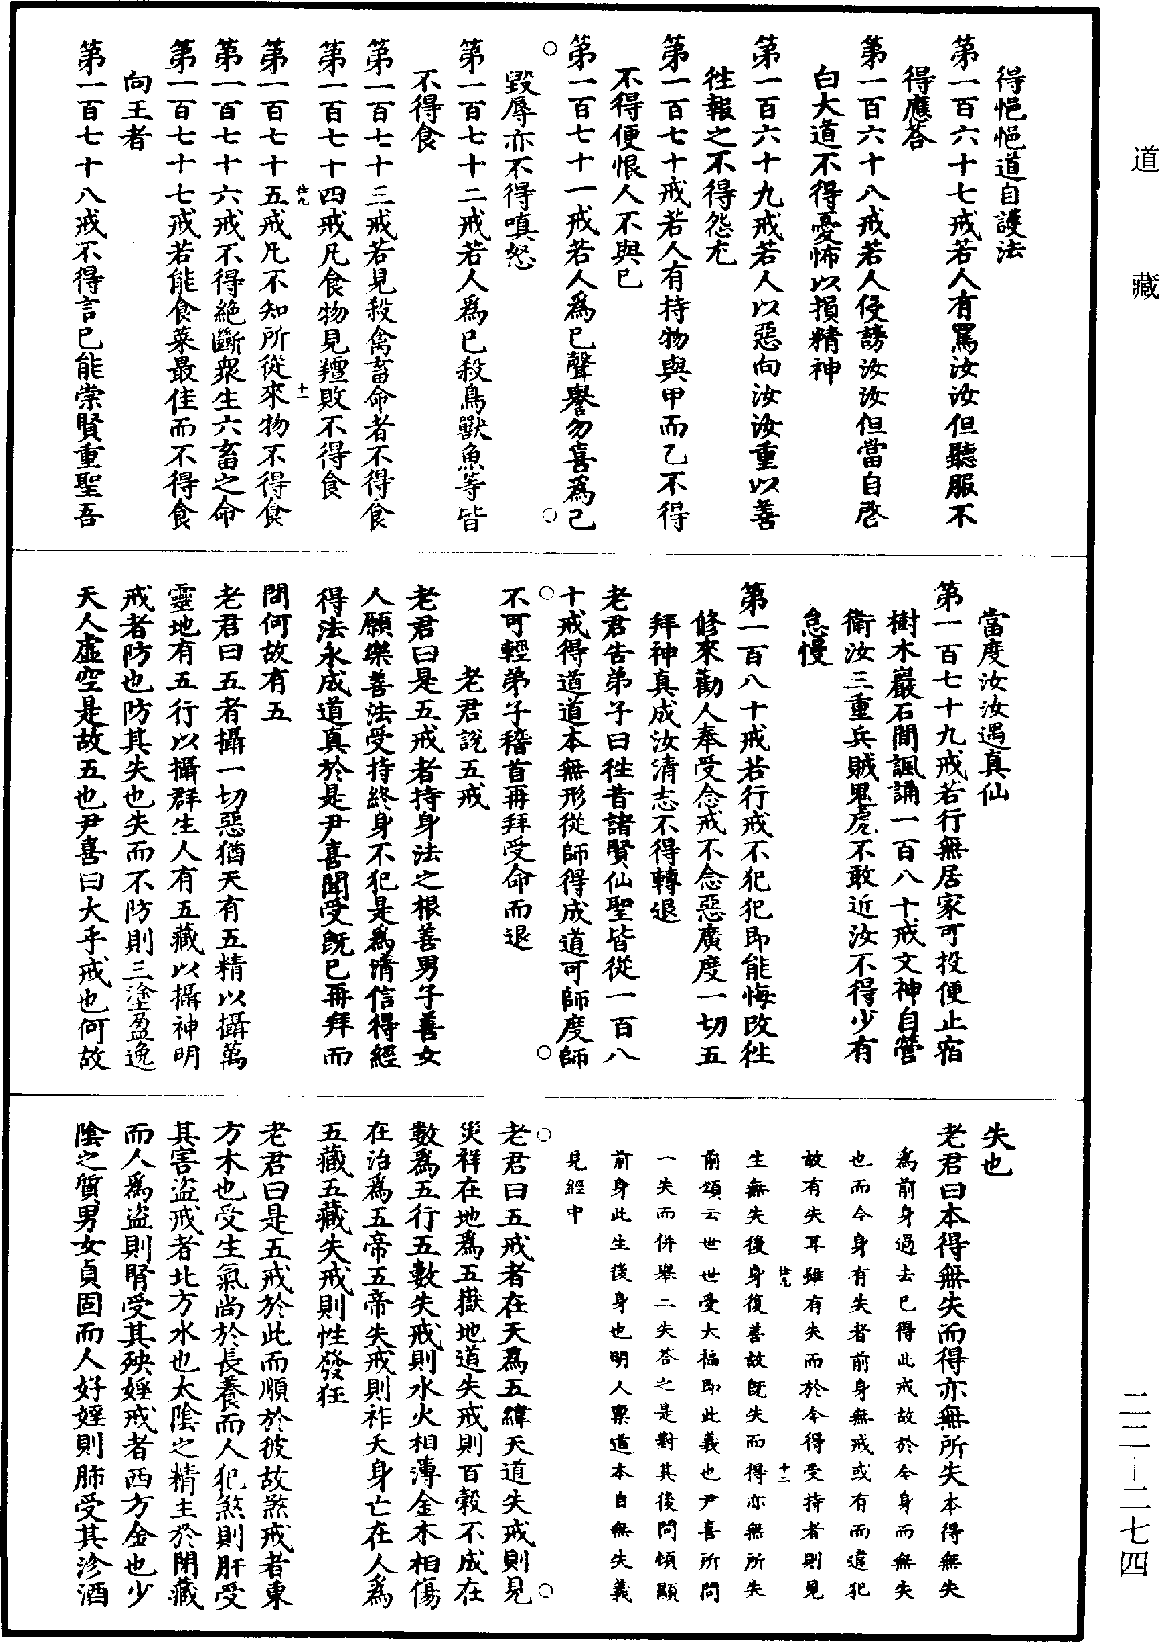 道藏
得悒悒道自護法
第一百六十七戒若人有罵汝汝但聽服不
得應答
第一百六十八戒若人侵謗汝汝但當自啓
白大道不得憂怖以損精神
第一百六十九戒若人以惡向汝汝重以善
徃報之不得怨尤
第一百七十戒若人有持物與甲而乙不得
不得便恨人不與已
第一百七十一戒若人爲已聲譽勿喜爲己
毀辱亦不得嗔怒
第一百七十二戒若人爲已殺鳥獸魚等皆
不得食
第一百七十三戒若見殺禽畜命者不得食
第一百七十四戒凡食物見羶敗不得食
第一百七十五戒凡不知所從來物不得食
第一百七十六戒不得絶斷衆生六畜之命
第一百七十七戒若能食菜最佳而不得食
向王者
第一百七十八戒不得言已能崇賢重聖吾
當度汝汝遇真仙
第一百七十九戒若行無居家可投便止宿
樹木巖石間諷誦一百八十戒文神自營
衛汝三重兵賊鬼虎不敢近汝不得少有
怠慢
第一百八十戒若行戒不犯犯即能悔改徃
修來勸人奉受念戒不念惡廣度一切五
拜神真成汝清志不得轉退
老君告弟子曰徃昔諸賢仙聖皆從一百八
十戒得道道本無形從師得成道可師度師
不可輕弟子稽首再拜受命而退
老君說五戒
老君曰是五戒者持身法之根善男子善女
人願樂善法受持終身不犯是爲清信得經
得法永成道真於是尹喜聞受既已再拜而
問何故有五
老君曰五者攝一切惡猶天有五精以攝萬
靈地有五行以攝群生人有五藏以攝神明
戒者防也防其失也失而不防則三塗盈逸
天人虛空是故五也尹喜曰大乎戒也何故
失也
老君曰本得無失而得亦無所失本得無失
爲前身過去已得此戒故於今身而無失
也而今身有失者前身無戒或有而違犯
故有失耳雖有失而於今得受持者則見
生無失後身復善故旣失而得亦無所失
前頌云世世受大福即此義也尹喜所問
一失而併舉二失荅之是對其後問傾顯
前身此生後身也明人禀道本自無失義
見經中
老君曰五戒者在天爲五緯天道失戒則見
災祥在地爲五嶽地道失戒則百穀不成在
數爲五行五數失戒則水火相薄金木相傷
在治爲五帝五帝失戒則祚夭身亡在人爲
五藏五藏失戒則性發狂
老君曰是五戒於此而順於彼故煞戒者東
方木也受生氣尚於長養而人犯煞則肝受
其害盜戒者北方水也太陰之精主於閉藏
而人爲盜則腎受其殃婬戒者西方金也少
陰之質男女貞固而人好婬則肺受其沴酒
二二—二七四